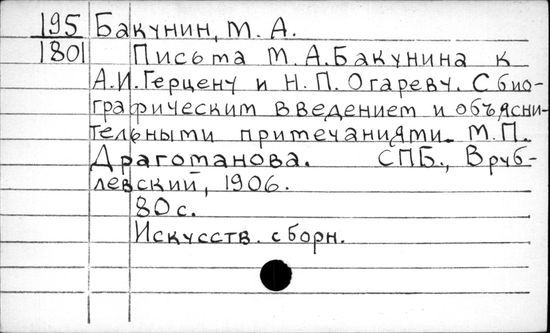 195 Бакунин, М. А.
1801 Письма М.А.Бакунина к
А.И.Герцену и Н.П.Огареву. С био-
графическим введением и объясни-
тельными примечаниями. М.П.
Драгоманова. СПБ., Вруб-
левский, 1906.
80 с.
Искусств. сборн.